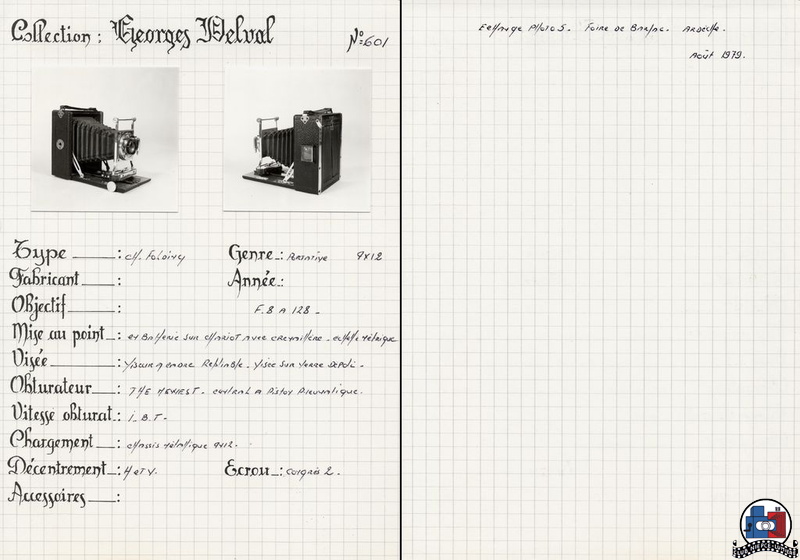 Collection : Georges Delval
N° 601
Type : CH. Folding Genre : Portative 9x12
Fabricant : Année :
Objectif : F. 8 A 128 -
Mise au point : et Batterie sur chariot avec cremaillère - echelle métrique
Visée : Viseur a cadre Repliable - Visée sur verre depoli -
Obturateur : THE NEWEST - central a Piston Pneumatique.
Vitesse obturat. : I. B. T -
Chargement : chassis métallique 9x12.
Décentrement : H et V. Ecrou : congrès 2.
Accessoires :
Echange Photos. Foire de Ardeche.
Août 1979.